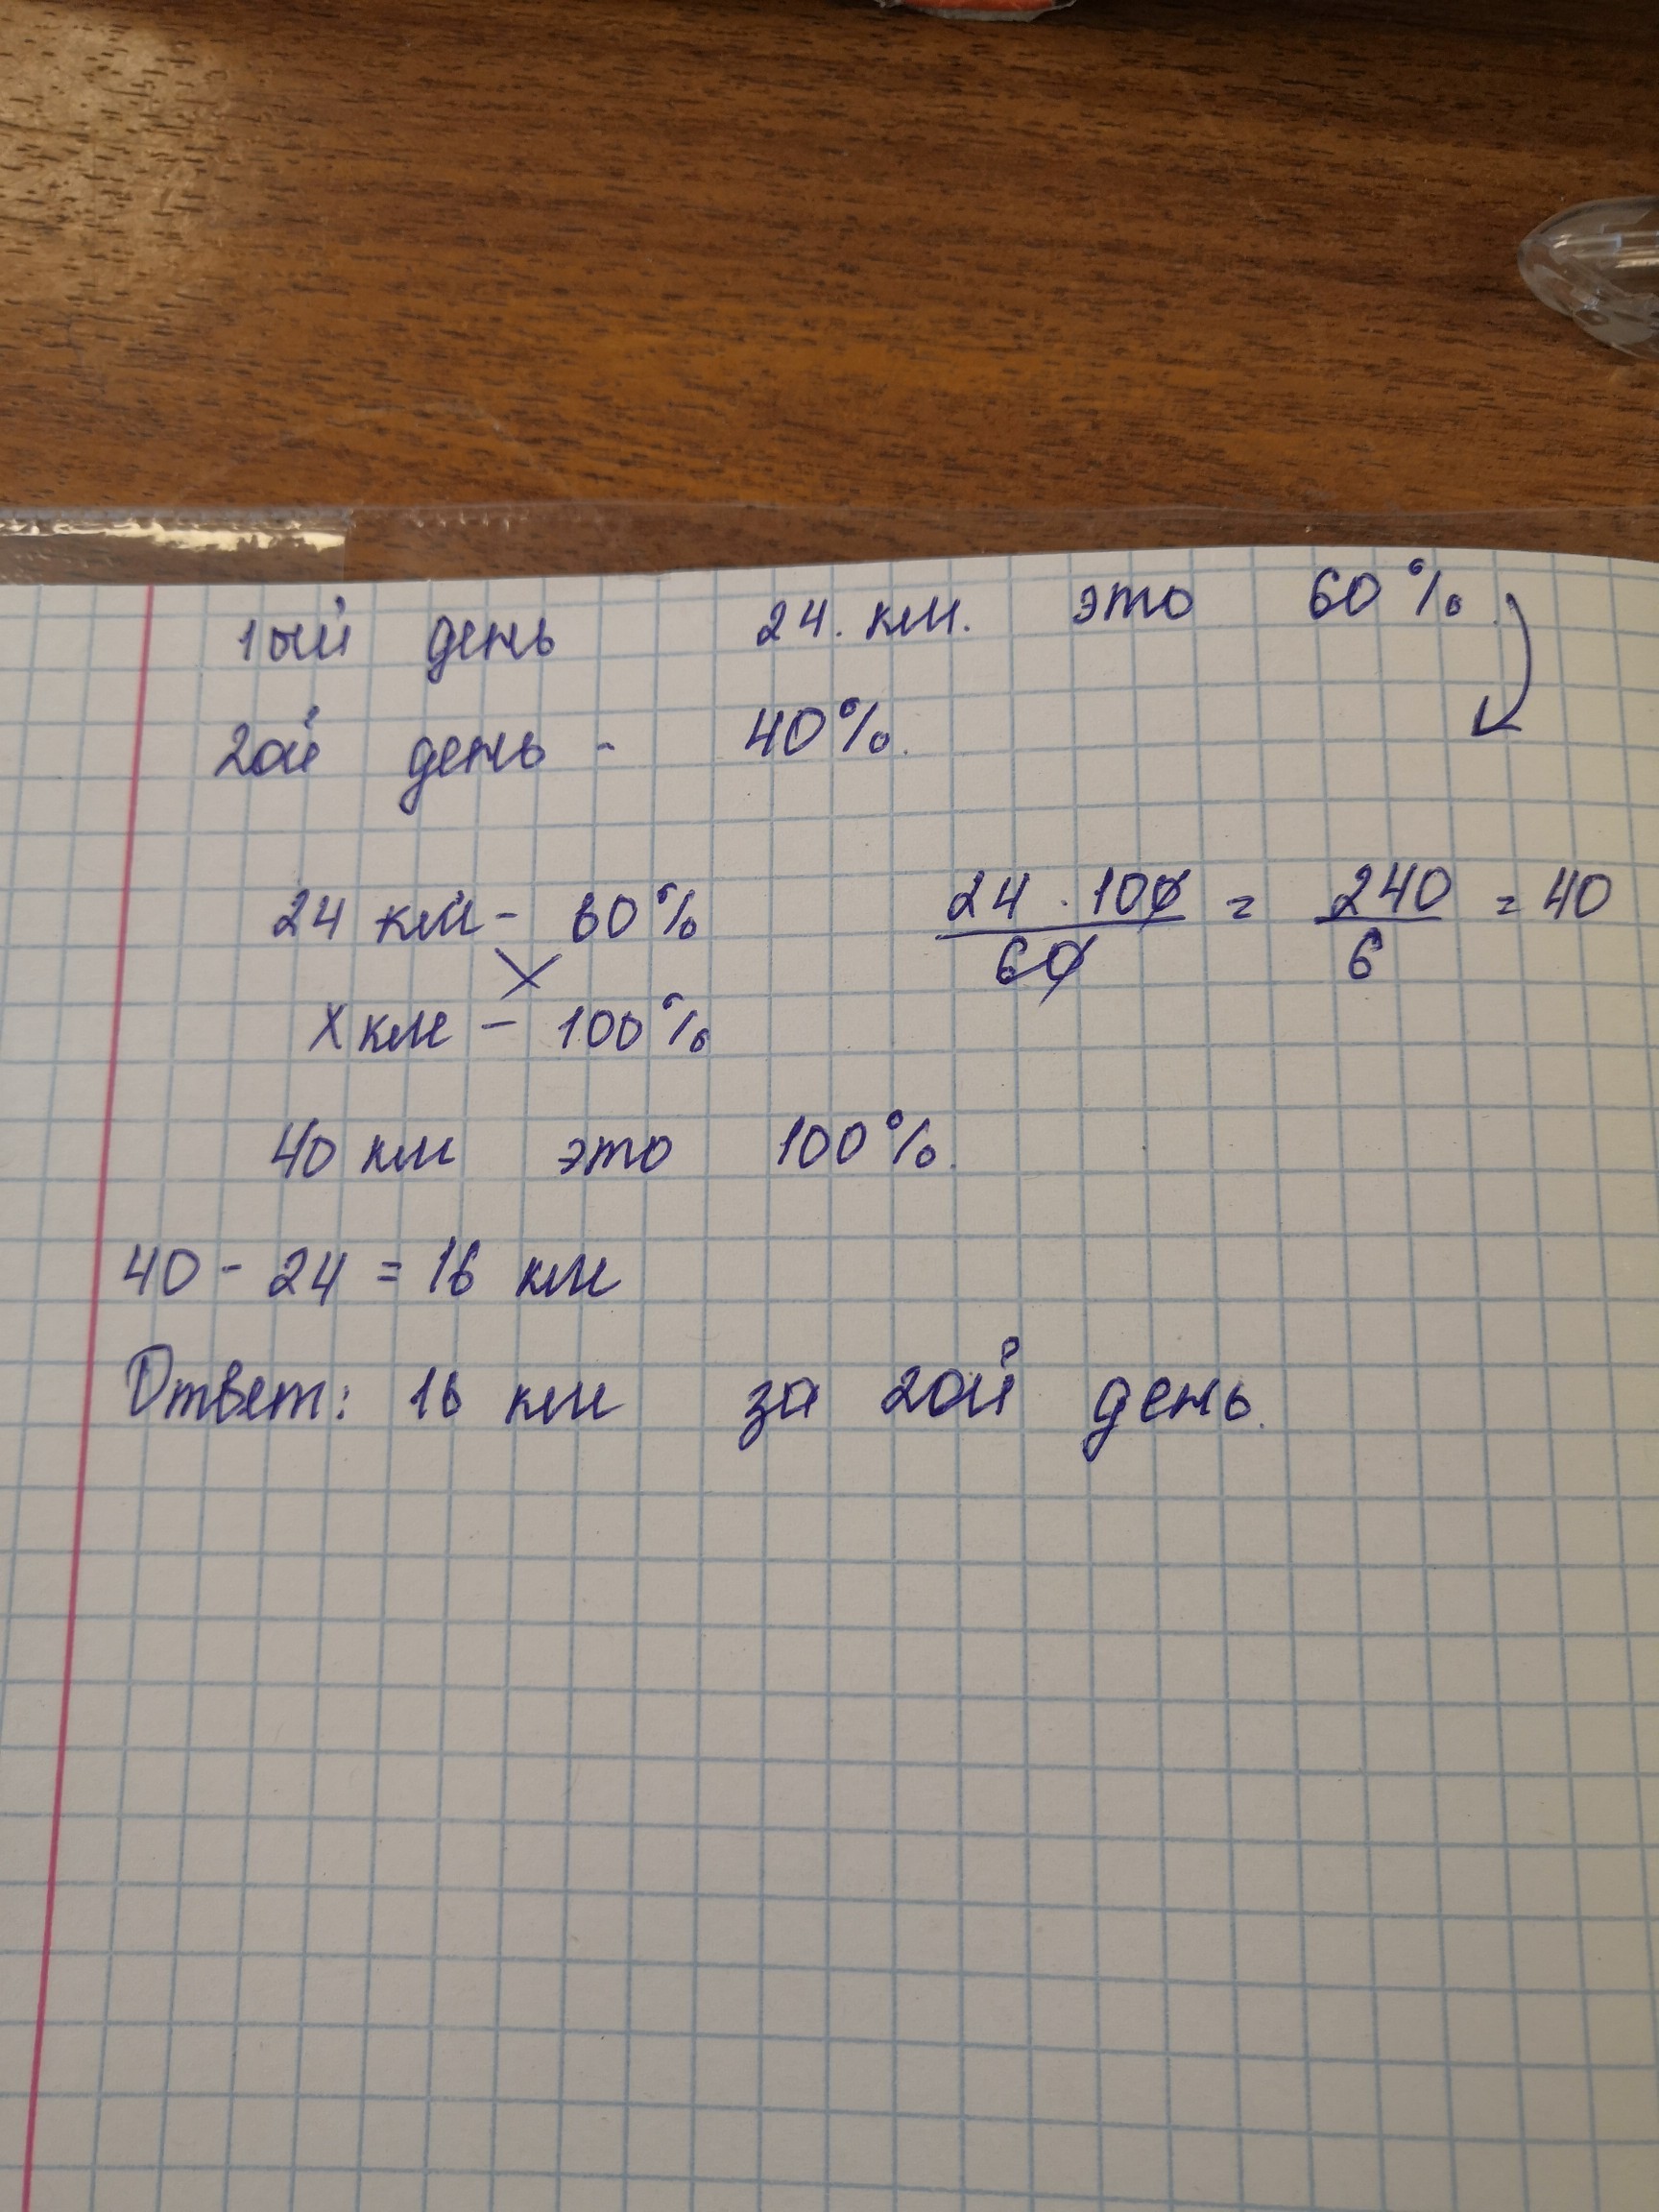 1ый день 24. км. это 60%.
2ой день - 40%.
24 км - 60%
24 · 100 / 60 = 240 / 6 = 40
х км - 100%
40 км это 100%.
40 - 24 = 16 км
Ответ: 16 км за 2ой день.